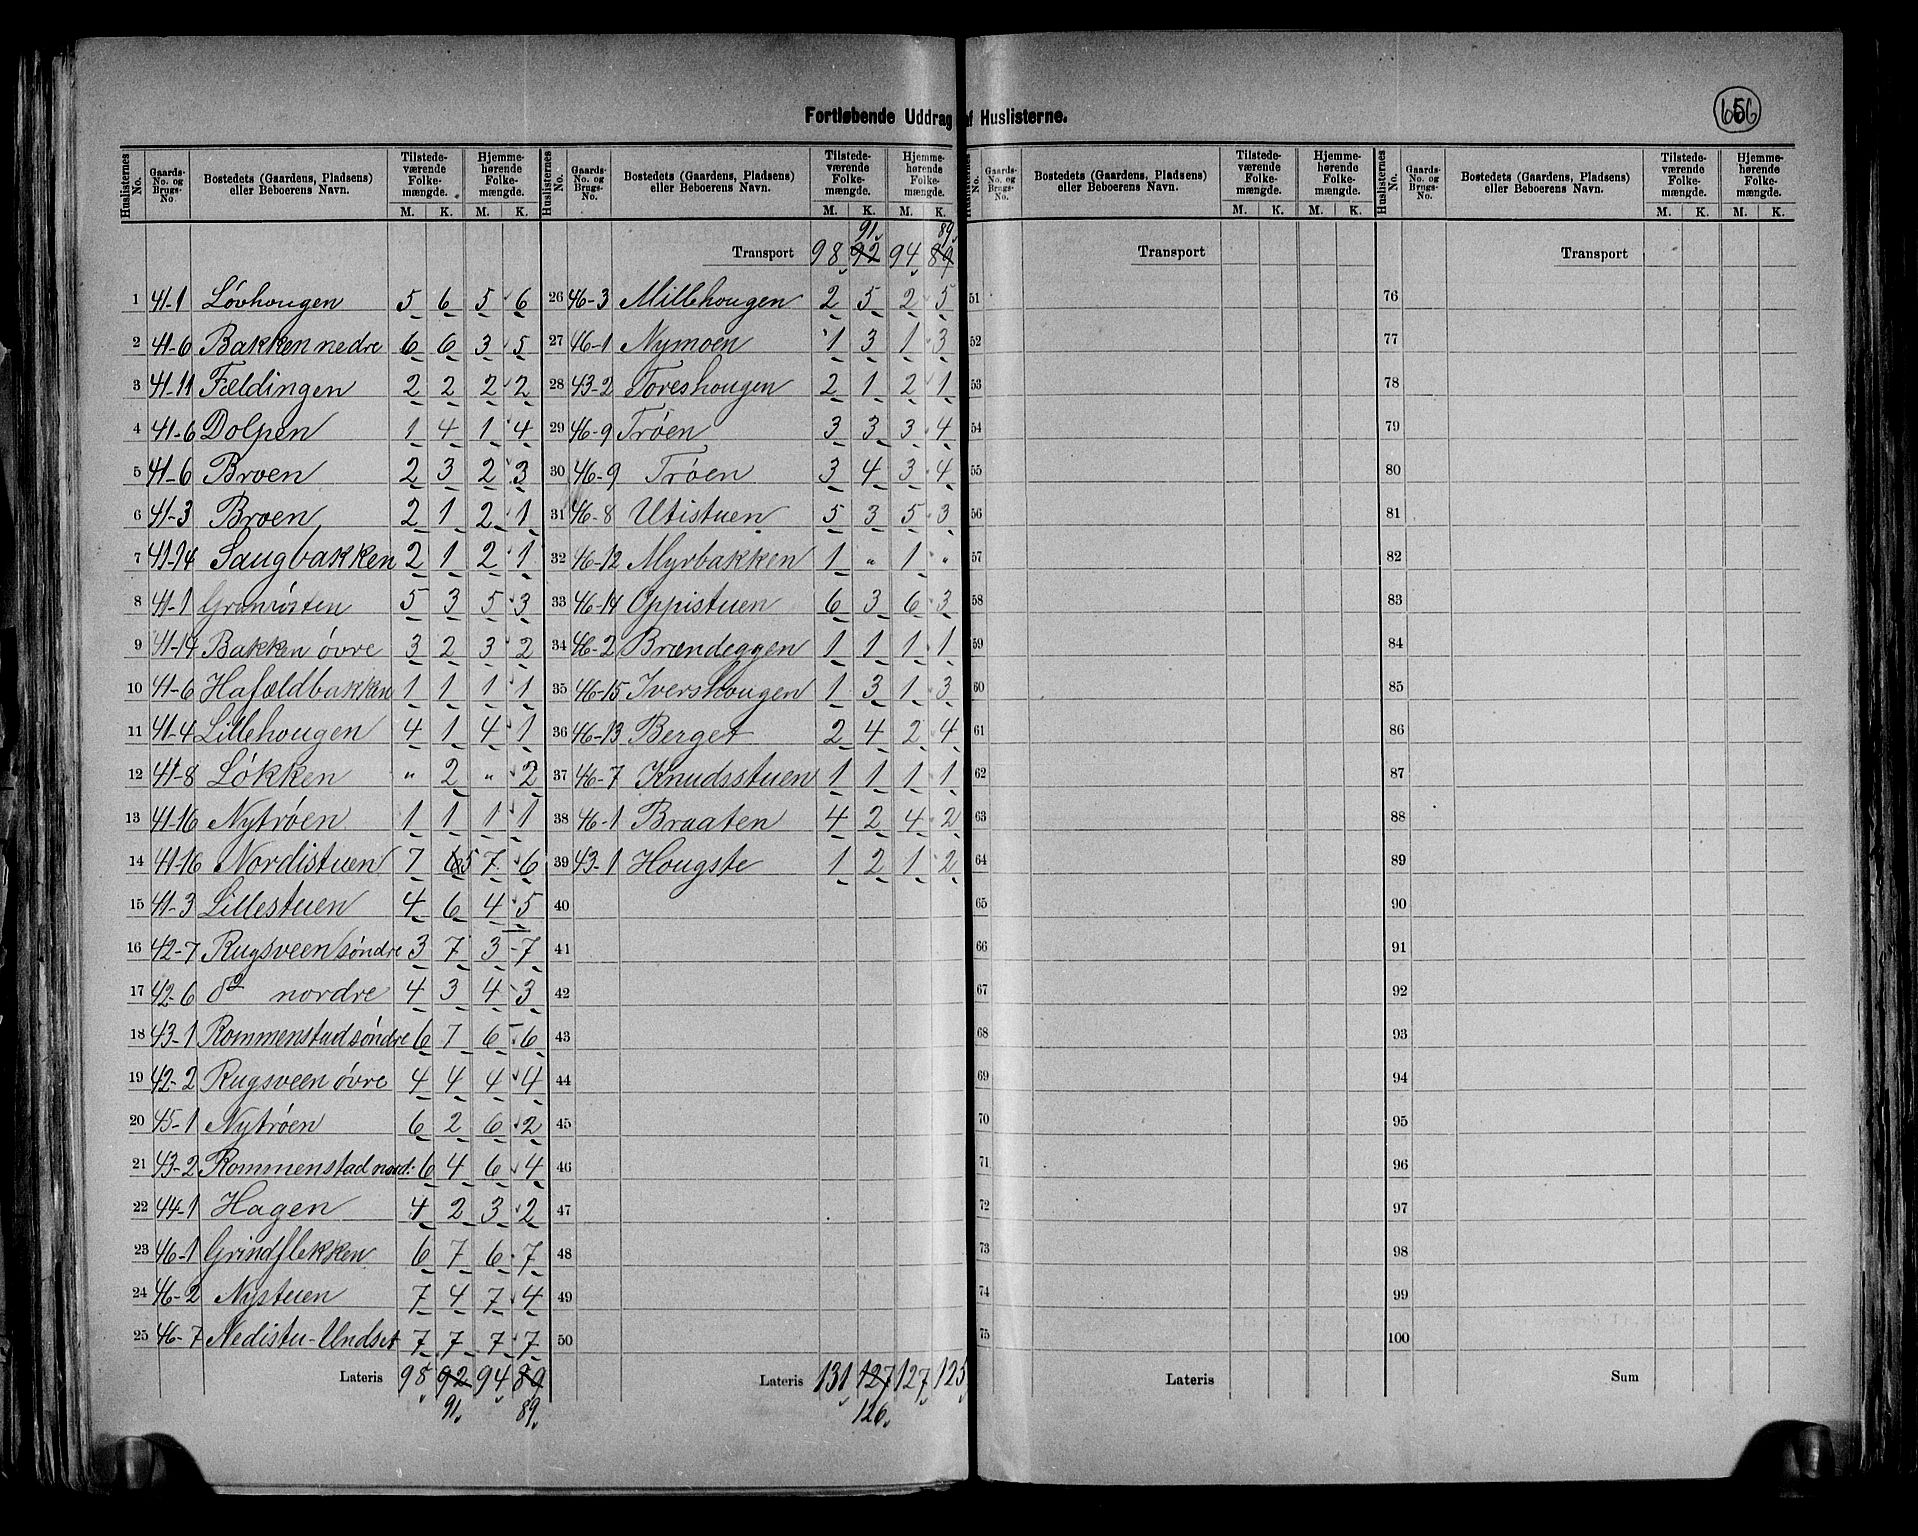 Fortløbende Uddrag af Huslisterne.
656
Huslisternes No. | Gaards-No. og Brugs-No | Bostedets (Gaardens, Pladsens) eller Beboerens Navn. | Tilstedeværende Folkemængde. M. K. | Hjemmehørende Folkemængde. M. K.
1 41-1 Løvhougen 5 6 5 6
2 41-6 Bakken nedre 6 6 3 5
3 41-11 Fældingen 2 2 2 2
4 41-6 Dolpen 1 4 1 4
5 41-6 Broen 2 3 2 3
6 41-3 Broen 2 1 2 1
7 41-14 Saugbakken 2 1 2 1
8 41-1 Granrösten 5 3 5 3
9 41-14 Bakken övre 3 2 3 2
10 41-6 Hafældbakken 1 1 1 1
11 41-4 Lillehougen 4 1 4 1
12 41-8 Løkken " 2 " 2
13 41-16 Nytrøen 1 1 1 1
14 41-16 Nordistuen 7 5 7 6
15 41-3 Lillestuen 4 6 4 5
16 42-7 Rugsveen søndre 3 7 3 7
17 42-6 do nordre 4 3 4 3
18 43-1 Rommenstad søndre 6 7 6 6
19 42-2 Rugsveen övre 4 4 4 4
20 45-1 Nytrøen 6 2 6 2
21 43-2 Rommenstad nord: 6 4 6 4
22 44-1 Hagen 4 2 3 2
23 46-1 Grindflekken 6 7 6 7
24 46-2 Nystuen 7 4 7 4
25 46-7 Nedistu-Undset 7 7 7 7
Lateris 98 92 94 89
91 89
Huslisternes No. | Gaards-No. og Brugs-No. | Bostedets (Gaardens, Pladsens) eller Beboerens Navn. | Tilstedeværende Folkemængde. M. K. | Hjemmehørende Folkemængde. M. K.
91 89
Transport 98 92 94 89
26 46-3 Millehougen 2 5 2 5
27 46-1 Nymoen 1 3 1 3
28 43-2 Toreshougen 2 1 2 1
29 46-9 Trøen 3 3 3 4
30 46-9 Trøen 3 4 3 4
31 46-8 Utistuen 5 3 5 3
32 46-12 Myrbakken 1 " 1 "
33 46-14 Oppistuen 6 3 6 3
34 46-2 Brændeggen 1 1 1 1
35 46-15 Ivershougen 1 3 1 3
36 46-13 Berget 2 4 2 4
37 46-7 Knudsstuen 1 1 1 1
38 46-1 Braaten 4 2 4 2
39 43-1 Hougste 1 2 1 2
40
41
42
43
44
45
46
47
48
49
50
Lateris 131 127 127 125
126
Huslisternes No. | Gaards-No. og Brugs-No. | Bostedets (Gaardens, Pladsens) eller Beboerens Navn. | Tilstedeværende Folkemængde. M. K. | Hjemmehørende Folkemængde. M. K.
Transport
51
52
53
54
55
56
57
58
59
60
61
62
63
64
65
66
67
68
69
70
71
72
73
74
75
Lateris
Huslisternes No. | Gaards-No. og Brugs-No. | Bostedets (Gaardens, Pladsens) eller Beboerens Navn. | Tilstedeværende Folkemængde. M. K. | Hjemmehørende Folkemængde. M. K.
Transport
76
77
78
79
80
81
82
83
84
85
86
87
88
89
90
91
92
93
94
95
96
97
98
99
100
Sum